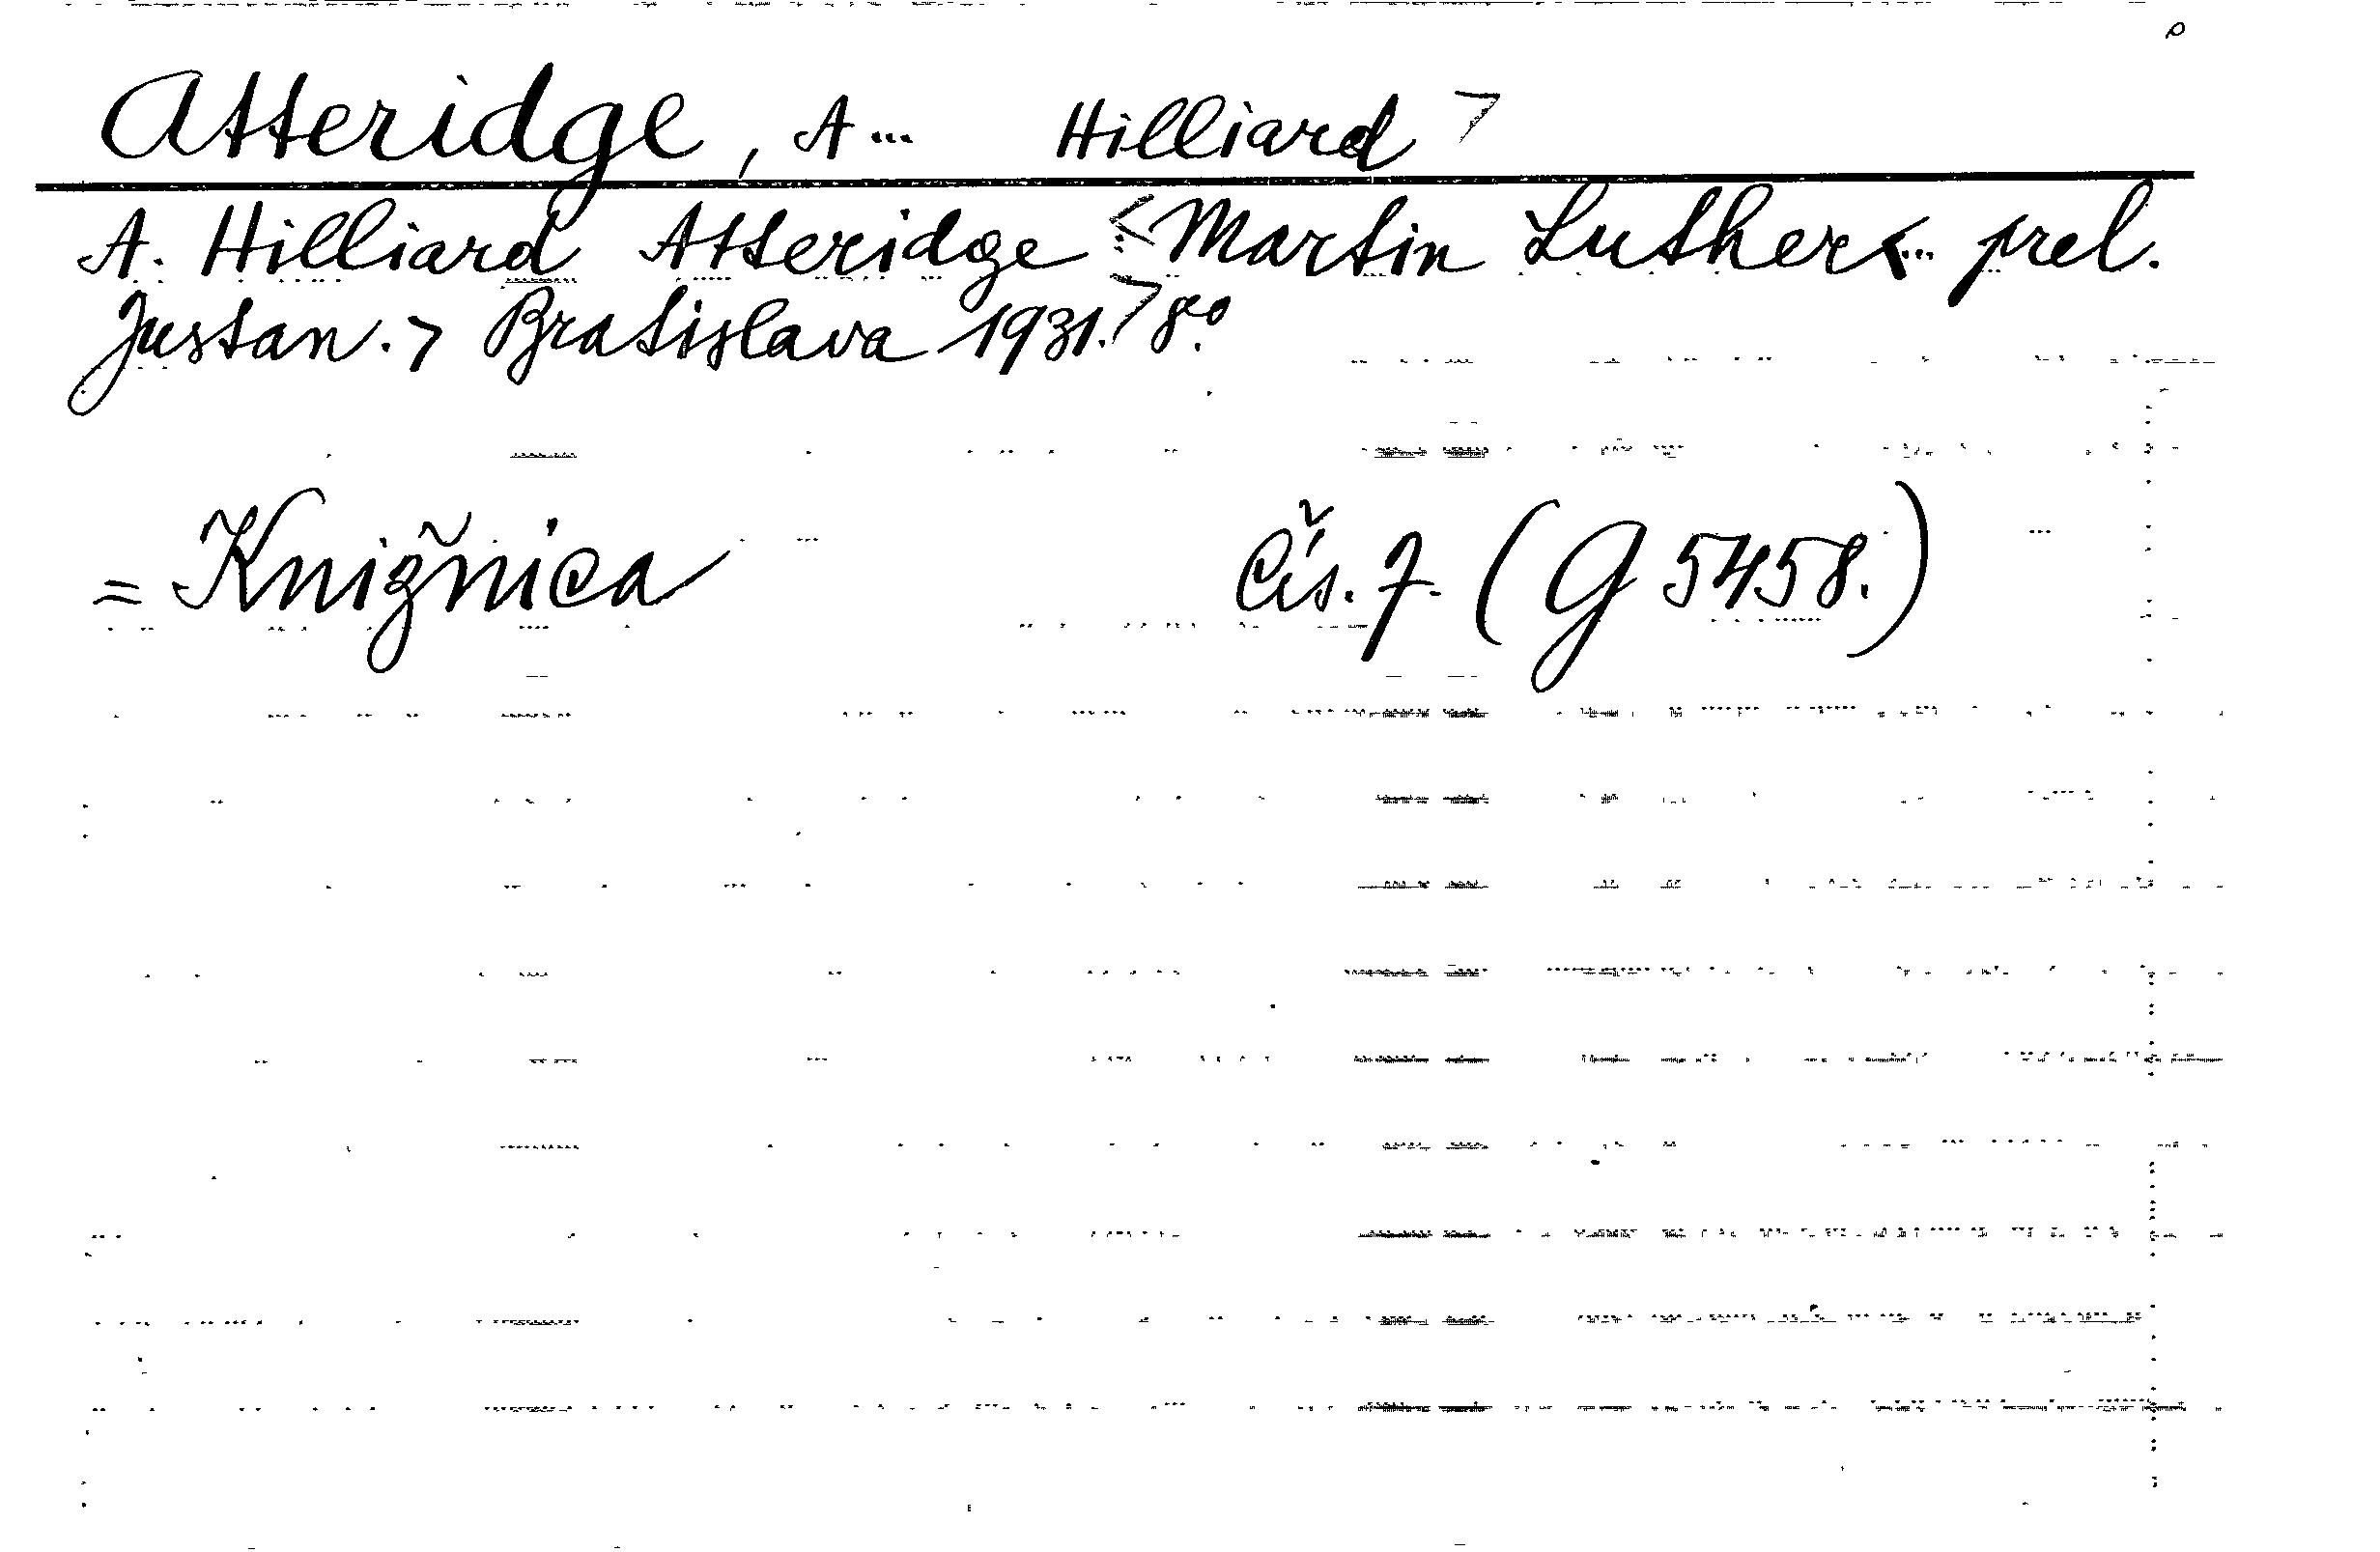 Atteridge, A... Hilliard >
A. Hilliard Atteridge <: Martin Luther <... prel.
Justan. > Bratislava 1931. > 8°.
= Knižnica Čís. 7. (G 5458.)